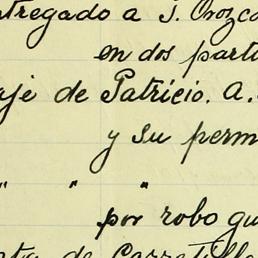 ntregado a J. Orozco
en dos parti
aje de Patricio. A.
y su perm
" " "
por robo gu
nta de Carretill